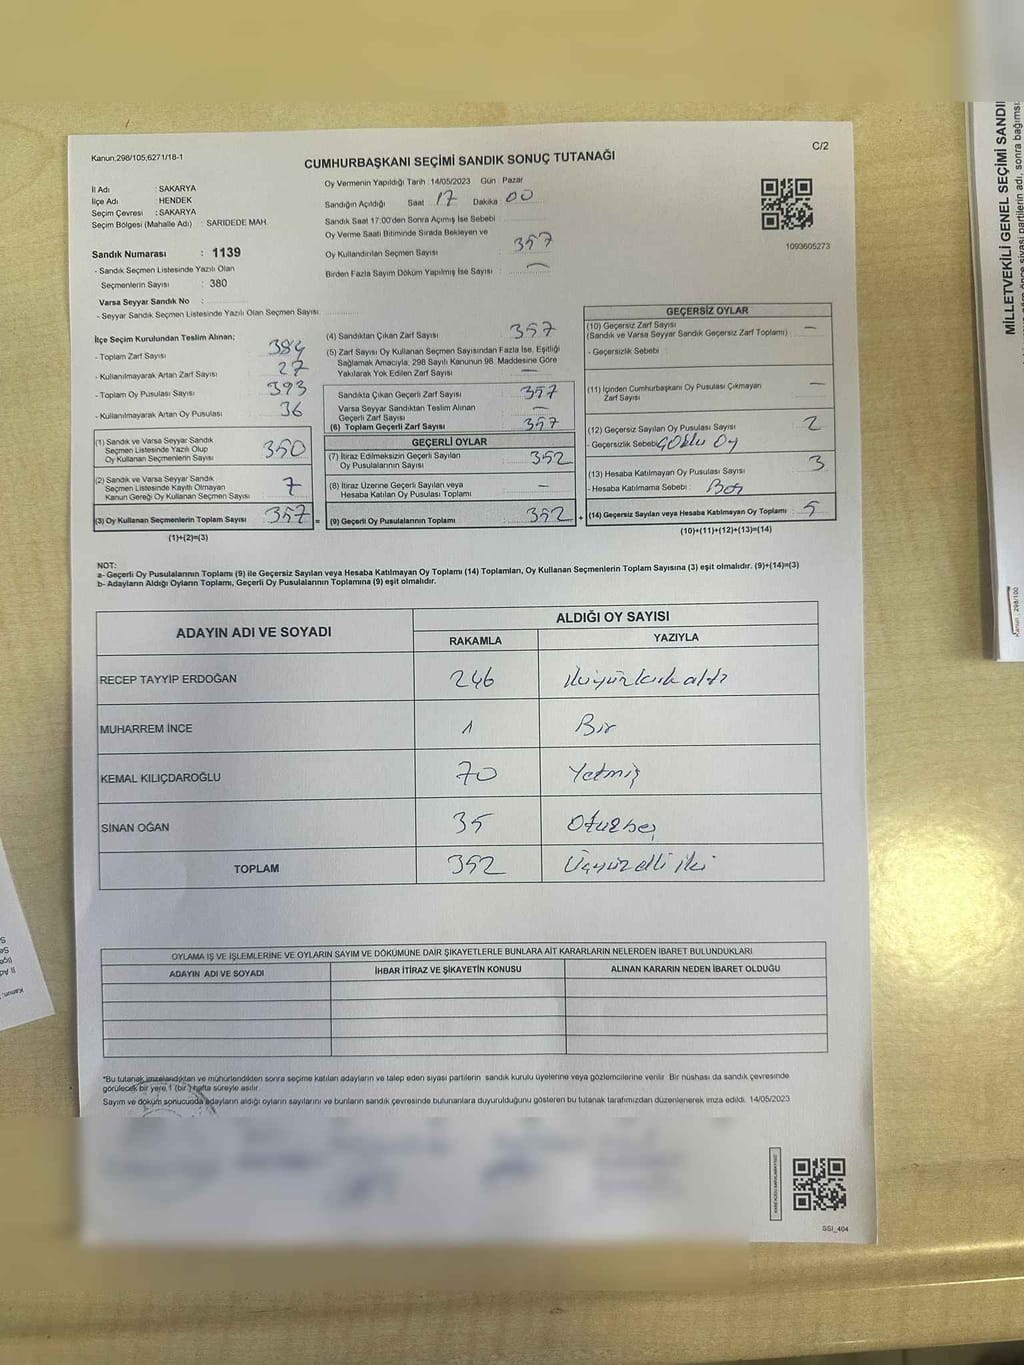 Kanun;298/105,6271/18-1
C/2
CUMHURBAŞKANI SEÇİMİ SANDIK SONUÇ TUTANAĞI
İl Adı : SAKARYA
İlçe Adı : HENDEK
Seçim Çevresi : SAKARYA
Seçim Bölgesi (Mahalle Adı) : SARIDEDE MAH.
Oy Vermenin Yapıldığı Tarih : 14/05/2023 Gün : Pazar
Sandığın Açıldığı Saat 17 Dakika 00
Sandık Saat 17:00'den Sonra Açımış İse Sebebi
Oy Verme Saati Bitiminde Sırada Bekleyen ve
Oy Kullandırılan Seçmen Sayısı 357
Birden Fazla Sayım Döküm Yapılmış İse Sayısı —
1093605273
Sandık Numarası : 1139
- Sandık Seçmen Listesinde Yazılı Olan
Seçmenlerin Sayısı : 380
Varsa Seyyar Sandık No :
- Seyyar Sandık Seçmen Listesinde Yazılı Olan Seçmen Sayısı :
İlçe Seçim Kurulundan Teslim Alınan;
- Toplam Zarf Sayısı 384
- Kullanılmayarak Artan Zarf Sayısı 27
- Toplam Oy Pusulası Sayısı 393
- Kullanılmayarak Artan Oy Pusulası 36
(1) Sandık ve Varsa Seyyar Sandık
Seçmen Listesinde Yazılı Olup
Oy Kullanan Seçmenlerin Sayısı 350
(2) Sandık ve Varsa Seyyar Sandık
Seçmen Listesinde Kayıtlı Olmayan
Kanun Gereği Oy Kullanan Seçmen Sayısı 7
(3) Oy Kullanan Seçmenlerin Toplam Sayısı 357 =
(1)+(2)=(3)
(4) Sandıktan Çıkan Zarf Sayısı 357
(5) Zarf Sayısı Oy Kullanan Seçmen Sayısından Fazla İse, Eşitliği
Sağlamak Amacıyla; 298 Sayılı Kanunun 98. Maddesine Göre
Yakılarak Yok Edilen Zarf Sayısı —
Sandıkta Çıkan Geçerli Zarf Sayısı 357
Varsa Seyyar Sandıktan Teslim Alınan
Geçerli Zarf Sayısı —
(6) Toplam Geçerli Zarf Sayısı 357
GEÇERLİ OYLAR
(7) İtiraz Edilmeksizin Geçerli Sayılan
Oy Pusulalarının Sayısı 352
(8) İtiraz Üzerine Geçerli Sayılan veya
Hesaba Katılan Oy Pusulası Toplamı —
(9) Geçerli Oy Pusulalarının Toplamı 352 +
GEÇERSİZ OYLAR
(10) Geçersiz Zarf Sayısı —
(Sandık ve Varsa Seyyar Sandık Geçersiz Zarf Toplamı)
- Geçersizlik Sebebi :
(11) İçinden Cumhurbaşkanı Oy Pusulası Çıkmayan
Zarf Sayısı —
(12) Geçersiz Sayılan Oy Pusulası Sayısı 2
- Geçersizlik Sebebi Oy
(13) Hesaba Katılmayan Oy Pusulası Sayısı 3
- Hesaba Katılmama Sebebi : Boş
(14) Geçersiz Sayılan veya Hesaba Katılmayan Oy Toplamı 5
(10)+(11)+(12)+(13)=(14)
NOT:
a- Geçerli Oy Pusulalarının Toplamı (9) ile Geçersiz Sayılan veya Hesaba Katılmayan Oy Toplamı (14) Toplamları, Oy Kullanan Seçmenlerin Toplam Sayısına (3) eşit olmalıdır. (9)+(14)=(3)
b- Adayların Aldığı Oyların Toplamı, Geçerli Oy Pusulalarının Toplamına (9) eşit olmalıdır.
ADAYIN ADI VE SOYADI
ALDIĞI OY SAYISI
RAKAMLA YAZIYLA
RECEP TAYYİP ERDOĞAN 246 ikiyüzkırkaltı
MUHARREM İNCE 1 Bir
KEMAL KILIÇDAROĞLU 70 Yetmiş
SİNAN OĞAN 35 Otuzbeş
TOPLAM 352 Üçyüzelli iki
OYLAMA İŞ VE İŞLEMLERİNE VE OYLARIN SAYIM VE DÖKÜMÜNE DAİR ŞİKAYETLERLE BUNLARA AİT KARARLARIN NELERDEN İBARET BULUNDUKLARI
ADAYIN ADI VE SOYADI İHBAR İTİRAZ VE ŞİKAYETİN KONUSU ALINAN KARARIN NEDEN İBARET OLDUĞU
*Bu tutanak imzalandıktan ve mühürlendikten sonra seçime katılan adayların ve talep eden siyasi partilerin sandık kurulu üyelerine veya gözlemcilerine verilir. Bir nüshası da sandık çevresinde
görülecek bir yere 1 (bir) hafta süreyle asılır.
Sayım ve döküm sonucunda adayların aldığı oyların sayılarını ve bunların sandık çevresinde bulunanlara duyurulduğunu gösteren bu tutanak tarafımızdan düzenlenerek imza edildi. 14/05/2023
SSI_404
MİLLETVEKİLİ GENEL SEÇİMİ SANDI
Kanun : 298/100